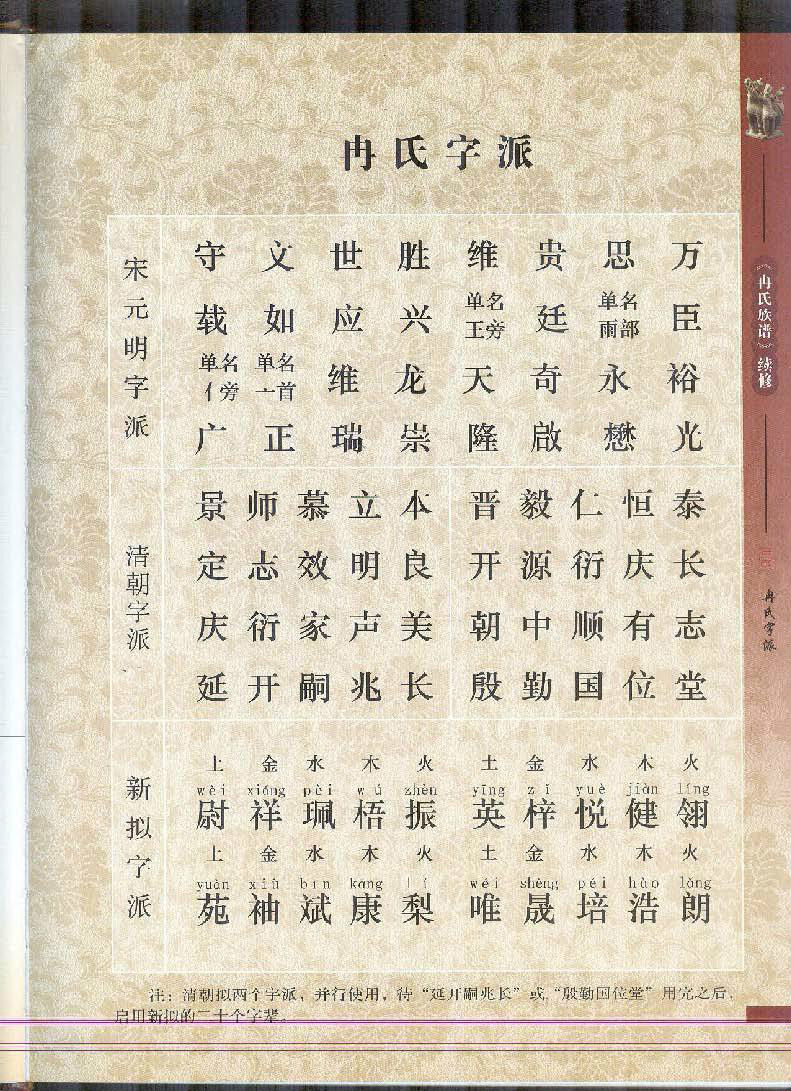 冉氏字派
宋元明字派
守 文 世 胜 维 贵 思 万
载 如 应 兴 单名王旁 廷 单名雨部 臣
单名亻旁 单名亠首 维 龙 天 奇 永 裕
广 正 瑞 崇 隆 啟 懋 光
清朝字派
景 师 慕 立 本 晋 毅 仁 恒 泰
定 志 效 明 良 开 源 衍 庆 长
庆 衍 家 声 美 朝 中 顺 有 志
延 开 嗣 兆 长 殷 勤 国 位 堂
新拟字派
土 金 水 木 火 土 金 水 木 火
wèi xiáng pèi wú zhèn yīng zǐ yuè jiàn líng
尉 祥 珮 梧 振 英 梓 悦 健 翎
土 金 水 木 火 土 金 水 木 火
yuàn xiù bīn kāng lí wéi shèng péi hào lǎng
苑 袖 斌 康 梨 唯 晟 培 浩 朗
注：清朝拟两个字派，并行使用，待“延开嗣兆长”或“殷勤国位堂”用完之后，
启用新拟的二十个字辈。
《冉氏族谱》续修
冉氏字派